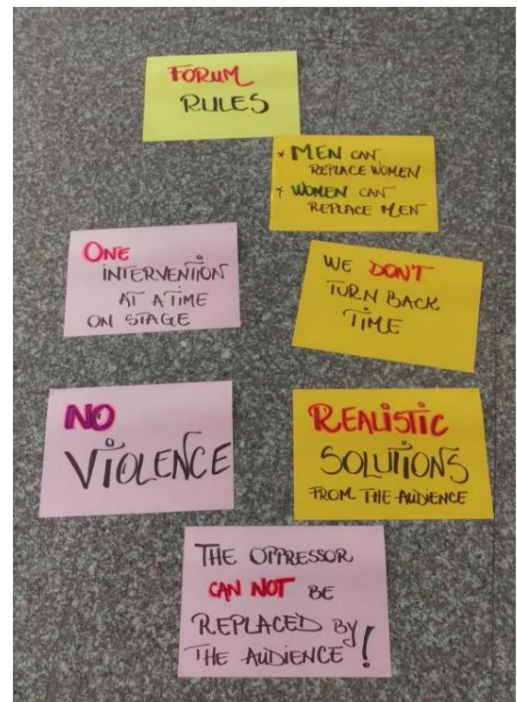 FORUM
RULES
* MEN CAN
REPLACE WOMEN
* WOMEN CAN
REPLACE MEN
ONE
INTERVENTION
AT A TIME
ON STAGE
WE DON'T
TURN BACK
TIME
NO
VIOLENCE
REALISTIC
SOLUTIONS
FROM THE AUDIENCE
THE OPPRESSOR
CAN NOT BE
REPLACED BY
THE AUDIENCE!